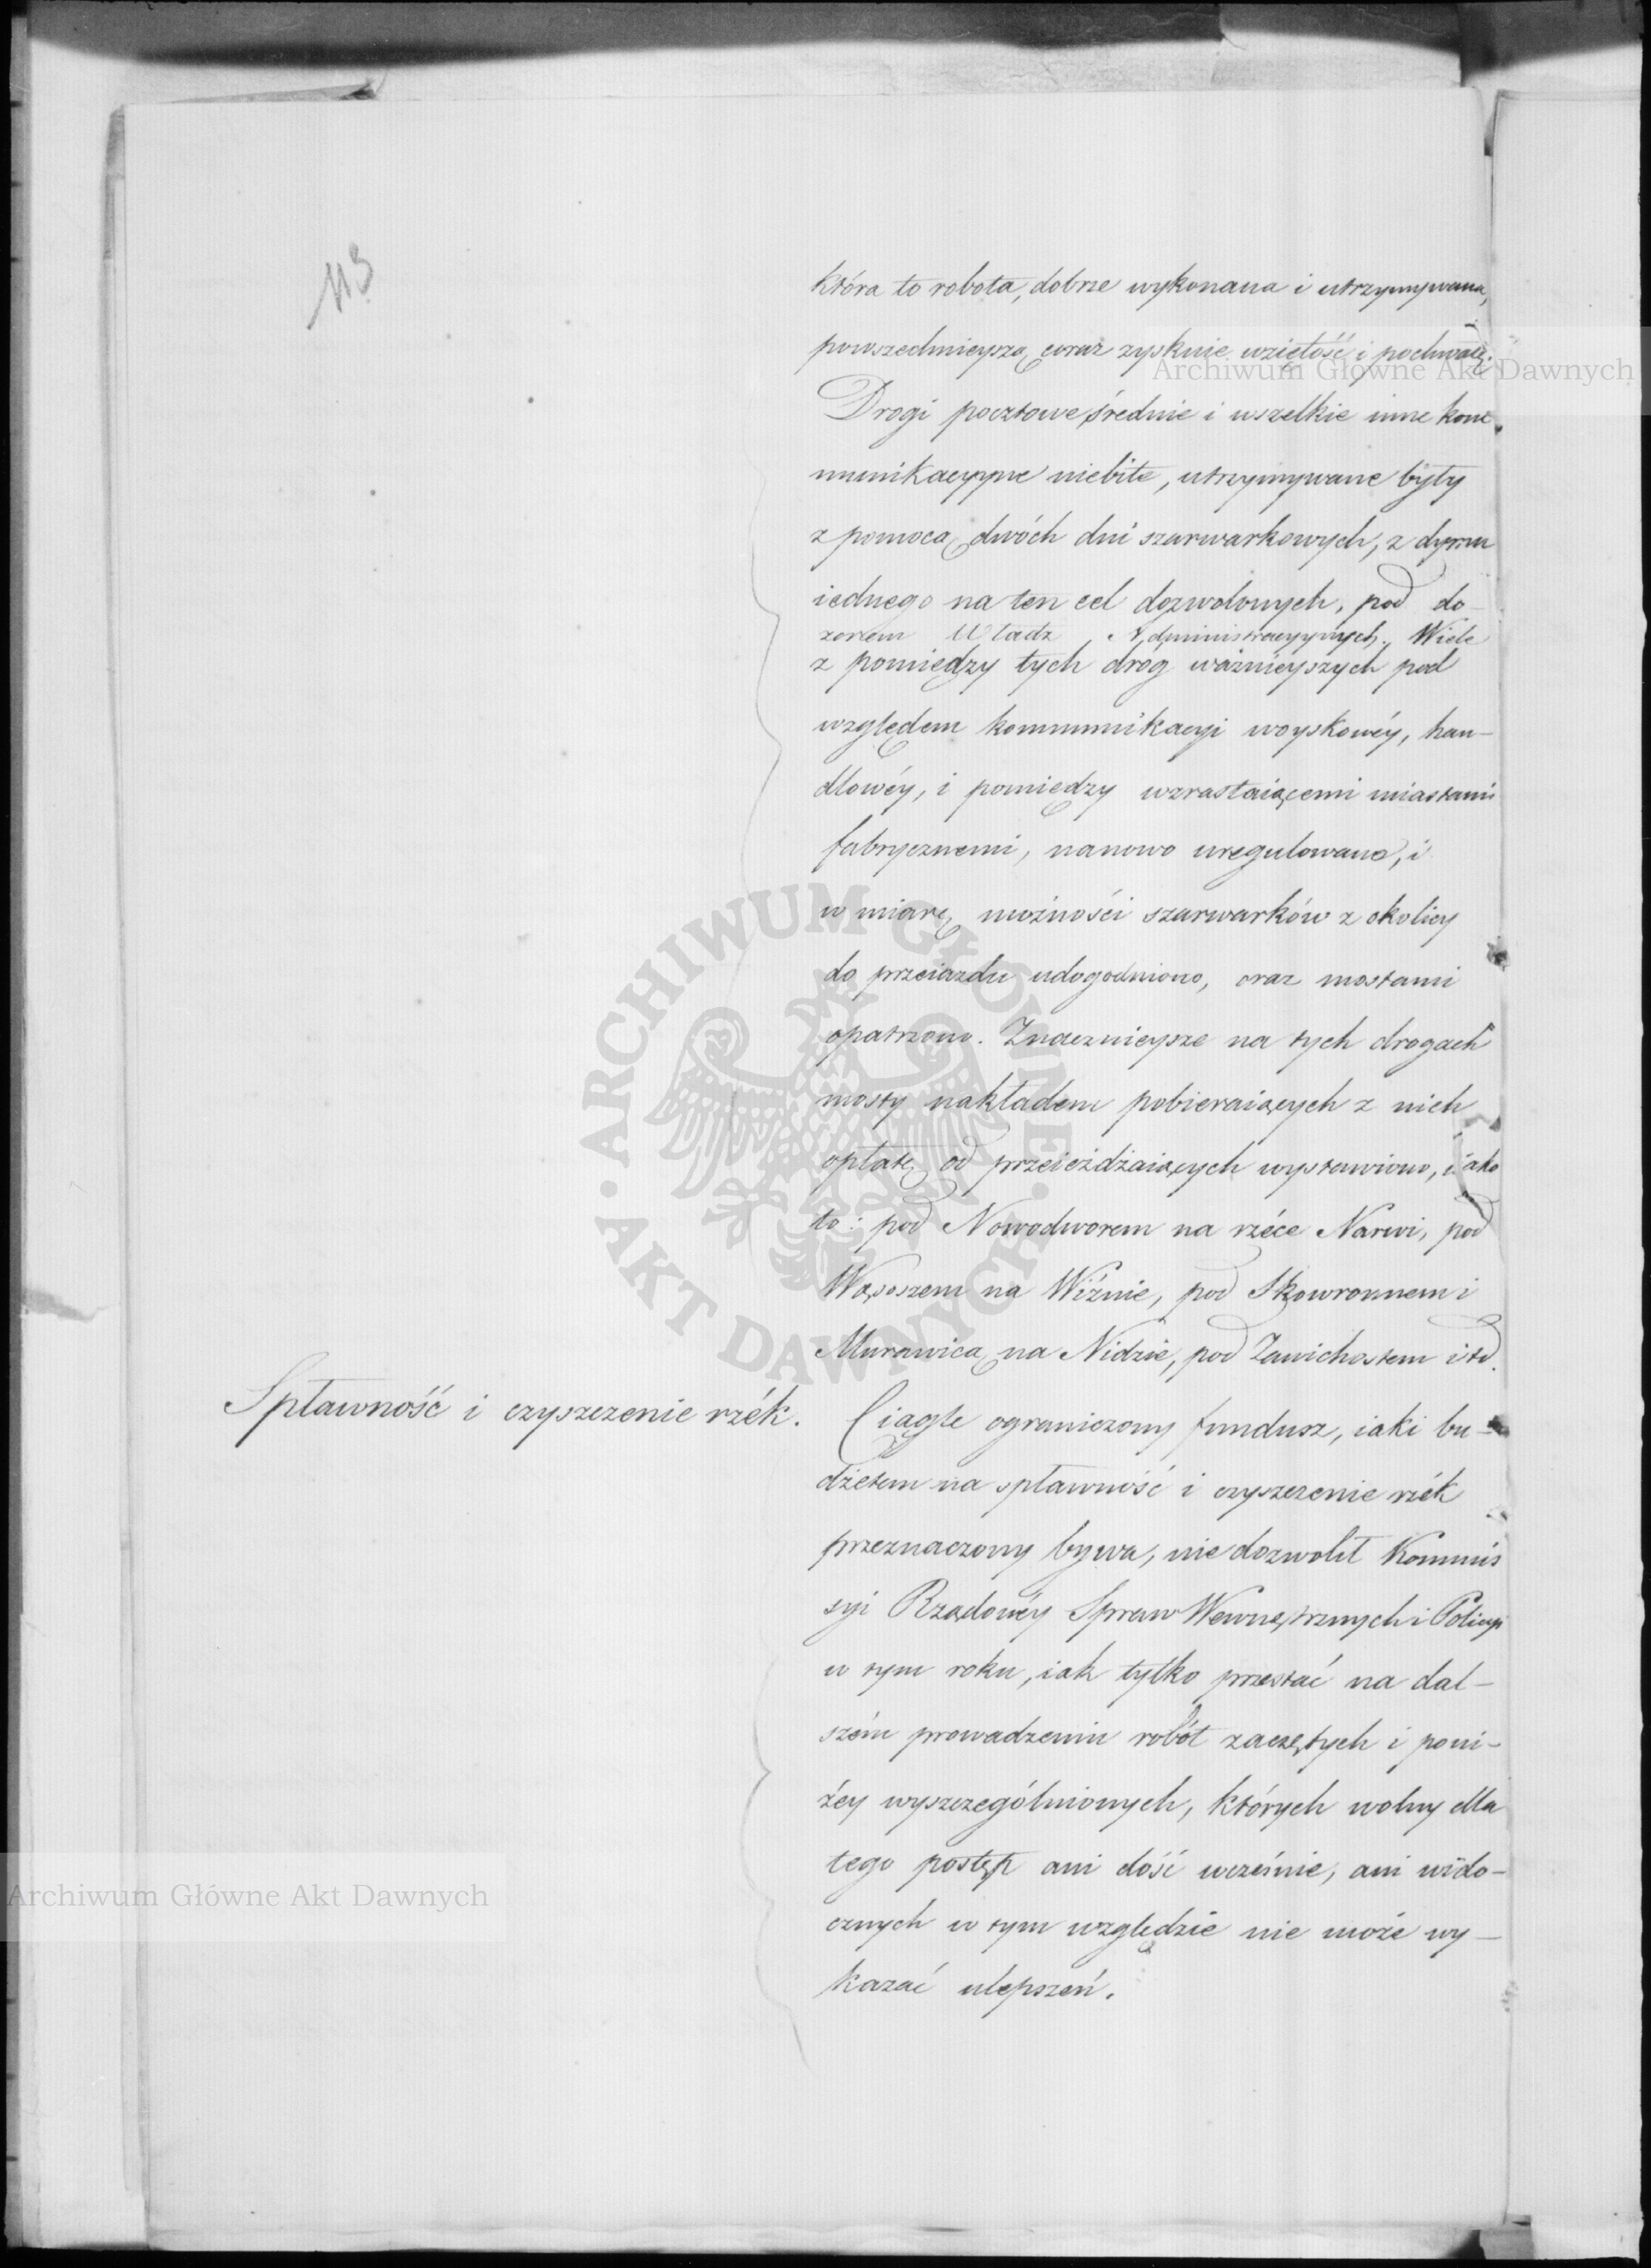 113
która to robota, dobrze wykonana i utrzymywana,
powszechnieyszą coraz zyskuie wziętość i pochwałę.
Drogi pocztowe średnie i wszelkie inne kom-
munikacyyne niebite, utrzymywane były
z pomocą dwóch dni szarwarkowych, z dymu
iednego na ten cel dozwolonych, pod do-
zorem Władz Administracyynych. Wiele
z pomiędzy tych dróg ważnieyszych pod
względem kommunikacyi woyskowéy, han-
dlowéy, i pomiędzy wzrastaiącemi miastami
fabrycznemi, nanowo uregulowano, i
w miarę możności szarwarków z okolicy
do przeiazdu udogodniono, oraz mostami
opatrzono. Znacznieysze na tych drogach
mosty nakładem pobieraiących z nich
opłatę od przeieżdżaiących wystawiono, iako
to: pod Nowodworem na rzéce Narwi, pod
Wąsoszem na Wiźnie, pod Skowronnem i
Murawicą na Nidzie, pod Zawichostem itd.
Spławność i czyszczenie rzék.
Ciągle ograniczony fundusz, iaki bu-
dżetem na spławność i czyszczenie rzék
przeznaczony bywa, nie dozwolił Kommis
syi Rządowéy Spraw Wewnętrznych i Policyi
w tym roku, iak tylko przestać na dal-
szém prowadzeniu robót zaczętych i poni-
żéy wyszczególnionych, których wolny dla
tego postęp ani dość wcześnie, ani wido-
cznych w tym względzie nie może wy-
kazać ulepszeń.
Archiwum Główne Akt Dawnych
ARCHIWUM GŁÓWNE · AKT DAWNYCH ·
Archiwum Główne Akt Dawnych